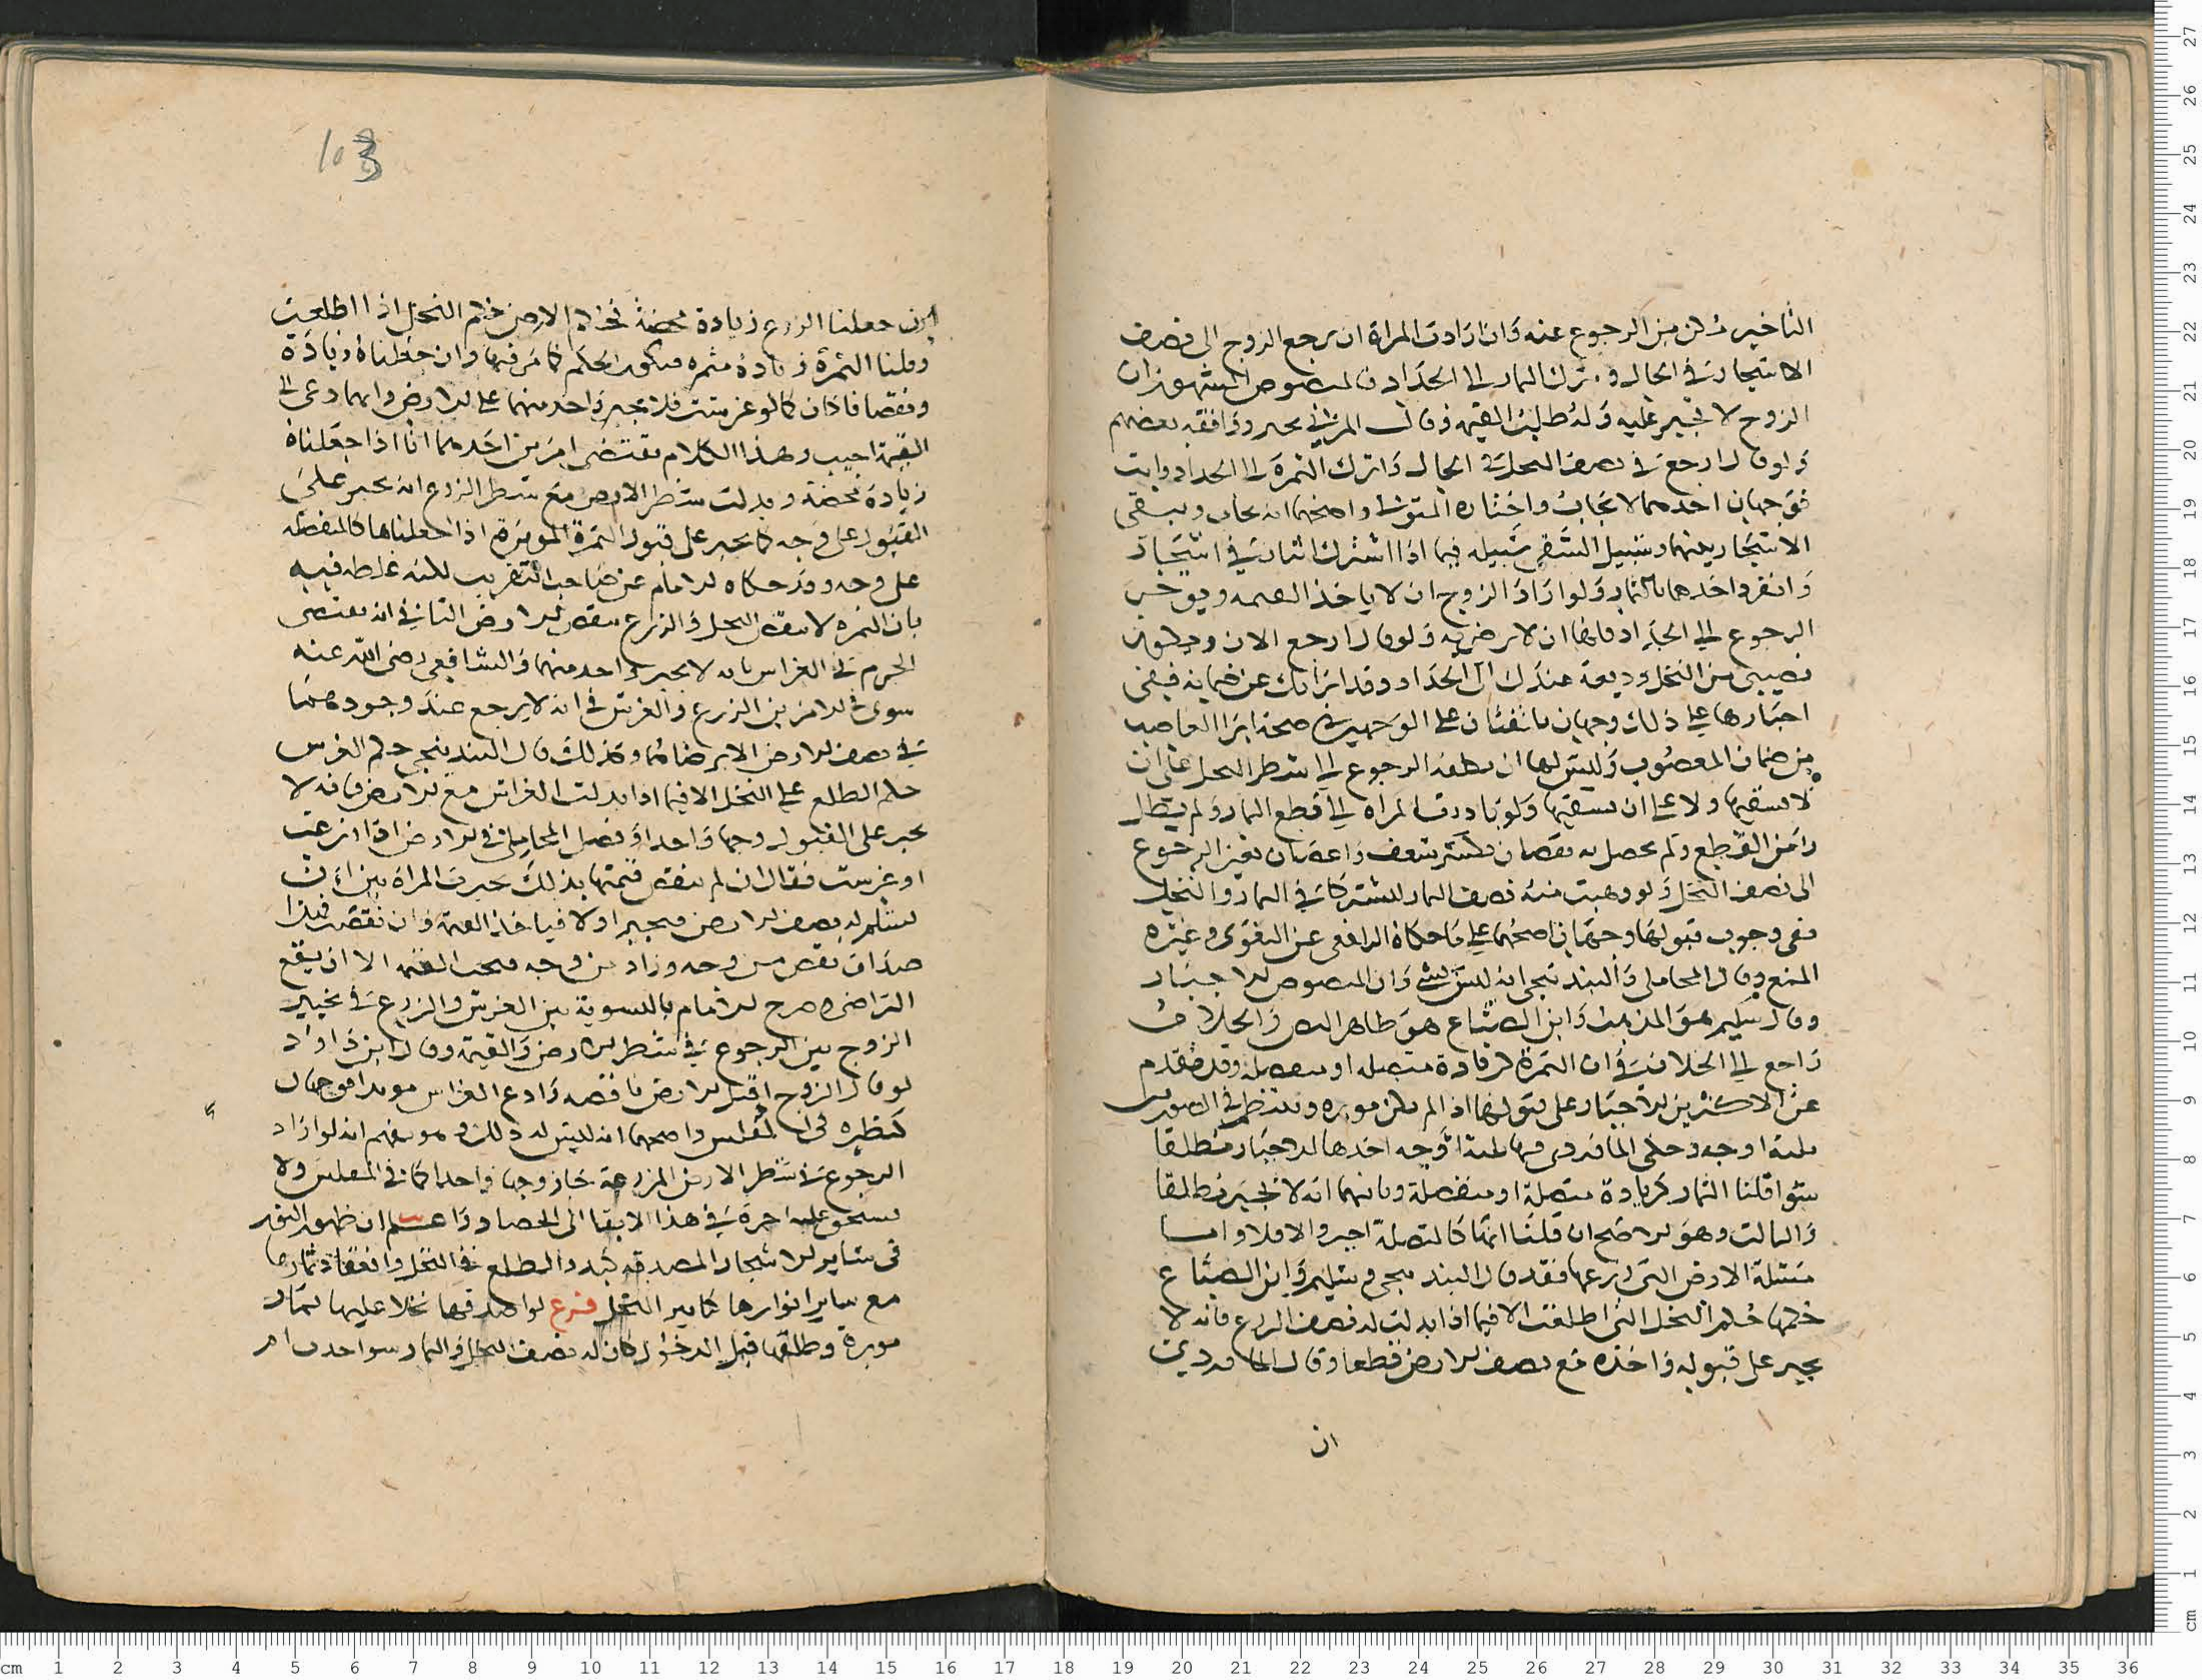 التاخير مُكن من الرجوع عنه وَان ارَادت المراة ان يرجع الزوج الى نصف
الاشجار في الحال و ترك الثمار الى الجداد فالمنصوص المشهور ان
الزوج لا يجبر عليه وَله طلب القيمة وقال المزني يجبر ووَافقه بعضهم
وَلو قال ارجع في نصف النخل في الحال وَاترك الثمرة الى الجداد وابت
فوجهان احدهما لا يجابُ واختاره المتولي واصحهما انه يجاب ويبقى
الاشجار بينهما وسبيل السقي سبيله فيما اذا اشترك اثنان في اشجار
وَانفرد احدهما بالثمار وَلو ارَادَ الزوج ان لا ياخذ القيمه ويوخر
الرجوع الى الجداد فابها ان لا يرضى به وَلو قال ارجع الان ويكون
نصيبي من النخل وديعة عندك الى الجداد وقد ابراتك عن ضمانه ففي
اجبارها على ذلك وجهان ماخذان على الوجهين في صحة ابرا الغاصب
من ضمان المغصُوب وَليس لها ان تكلفه الرجوع الى شطر النخل على ان
لا يسقيها ولا على ان يسقيها وَلو بَادرت المراه الى قطع الثمار وَلم يطل
زمن القطع وَلم يحصل به نقصان بكسر سعف وَاغصان تعين الرجوع
الى نصف النخل وَلو وهبت منه نصف الثمار ليشتركا في الثمار والنخل
ففي وجوب قبولها وجهان اصحهما على مَا حكاه الرافعي عن البغوي وغيره
المنع وقال المحاملي وَالبندنيجي انه ليس بشي وَان المنصوص الاجبار
وقال سليم هو المذهب وَابن الصباغ هو ظاهر النص وَالخلاف
رَاجع الى الخلاف في وَان الثمرة كزيادة متصله او منفصلة وقد تقدم
عن الاكثرين الاجبار على قبولها اذا لم تكن موبره وينتظم في الصورتين
ثلثة اوجه وحكى الماوردي فيها ثلثة اوجه احدها الاجبار مطلقا
سَواء قلنا الثمار كزيادة متصلة او منفصلة وثانيهما انه لا يجبر مطلقا
وَالثالث وهو الاصح ان قلنا انها كالمتصلة اجبر والا فلا واما
مسئلة الارض التي زرعها فقد قال البندنيجي وسليم وَابن الصباغ
حكمها حُكم النخل التي اطلعت الا فيما اذا بدلت له نصف الزرع فانه لا
يجبر على قبوله وَاخذه مع نصف الارض قطعا وقال الماوردي
ان
ان جعلنا الزرع زيادة محضة فحكم الارض حكم النخل اذا اطلعت
وقلنا الثمرة زيادة مثمره فيكون الحكم كما مَر فيها وان جعلناهُ زيادَة
ونقصا فاذان كالو غرست فلا يجبر وَاحد منهما على الارض وايهما دعى الى
القيمة اجيب وهذا الكلام يقتضي امرين احدهما انا اذا جعلناه
زيادَة محضة وبدلت شطر الارض مع شطر الزرع انه يجبر على
القبول على وجه كما يجبر على قبول الثمرة الموبرة اذا جعلناها كالمنفصله
على وجه وقد حكاه الامام عن صَاحب التقريب لكنه غلطه فيه
بان الثمره لا تنقص النخل وَالزرع ينقص الارض الثاني انه يقتضي
الجزم في الغراس بانه لا يجبر واحد منهما وَالشافعي رضى الله عنه
سوى في الامر بين الزرع وَالغرس في انه لا يرجع عند وجودهما
في نصف الارض الا برضائهما وكذلك قال البندنيجي حكم الغرس
حكم الطلع على النخل الا فيما اذا بدلت الغراس مع الارض فانه لا
يجبر على القبول وجها وَاحدا وَفصل المحاملي في الارض اذا زرعت
او غرست فقال ان لم تنقص قيمتها بذلك خيرت المراة بين ان
تسلم له نصف الارض فيجبر او لا فياخذ القيمة وَان نقصت فهذا
صدَاق نقص من وجه وزاد من وجه فتجب القيمه الا ان يقع
التراضي وصرح الامام بالتسوية بين الغرس والزرع في تخيير
الزوج بين الرجوع في شطر الارض وَالقيمة وقال ابن دَاوُد
لو قال الزوج اقبل الارض ناقصه وَادع الغراس موبدا فوجهان
كنظيره في المفلس واصحهما انه ليس له ذلك و انه لو ارَاد
الرجوع في شطر الارض المزرعة جَاز وجها وَاحدا كما في المفلس ولا
تستحق عليه اجرة في هذا الابقا الى الحصاد وَاعلم ان ظهور النور
في سَاير الاشجار المصدقه كبدو الطلع في النخل وانعقاد ثمارها
مع ساير انوارها كتابير النخل فرع لو اصدقها نخلا عليها ثمار
موبرة وطلقها قبل الدخول كان له نصف النخل وَالثمار سوا احد ام